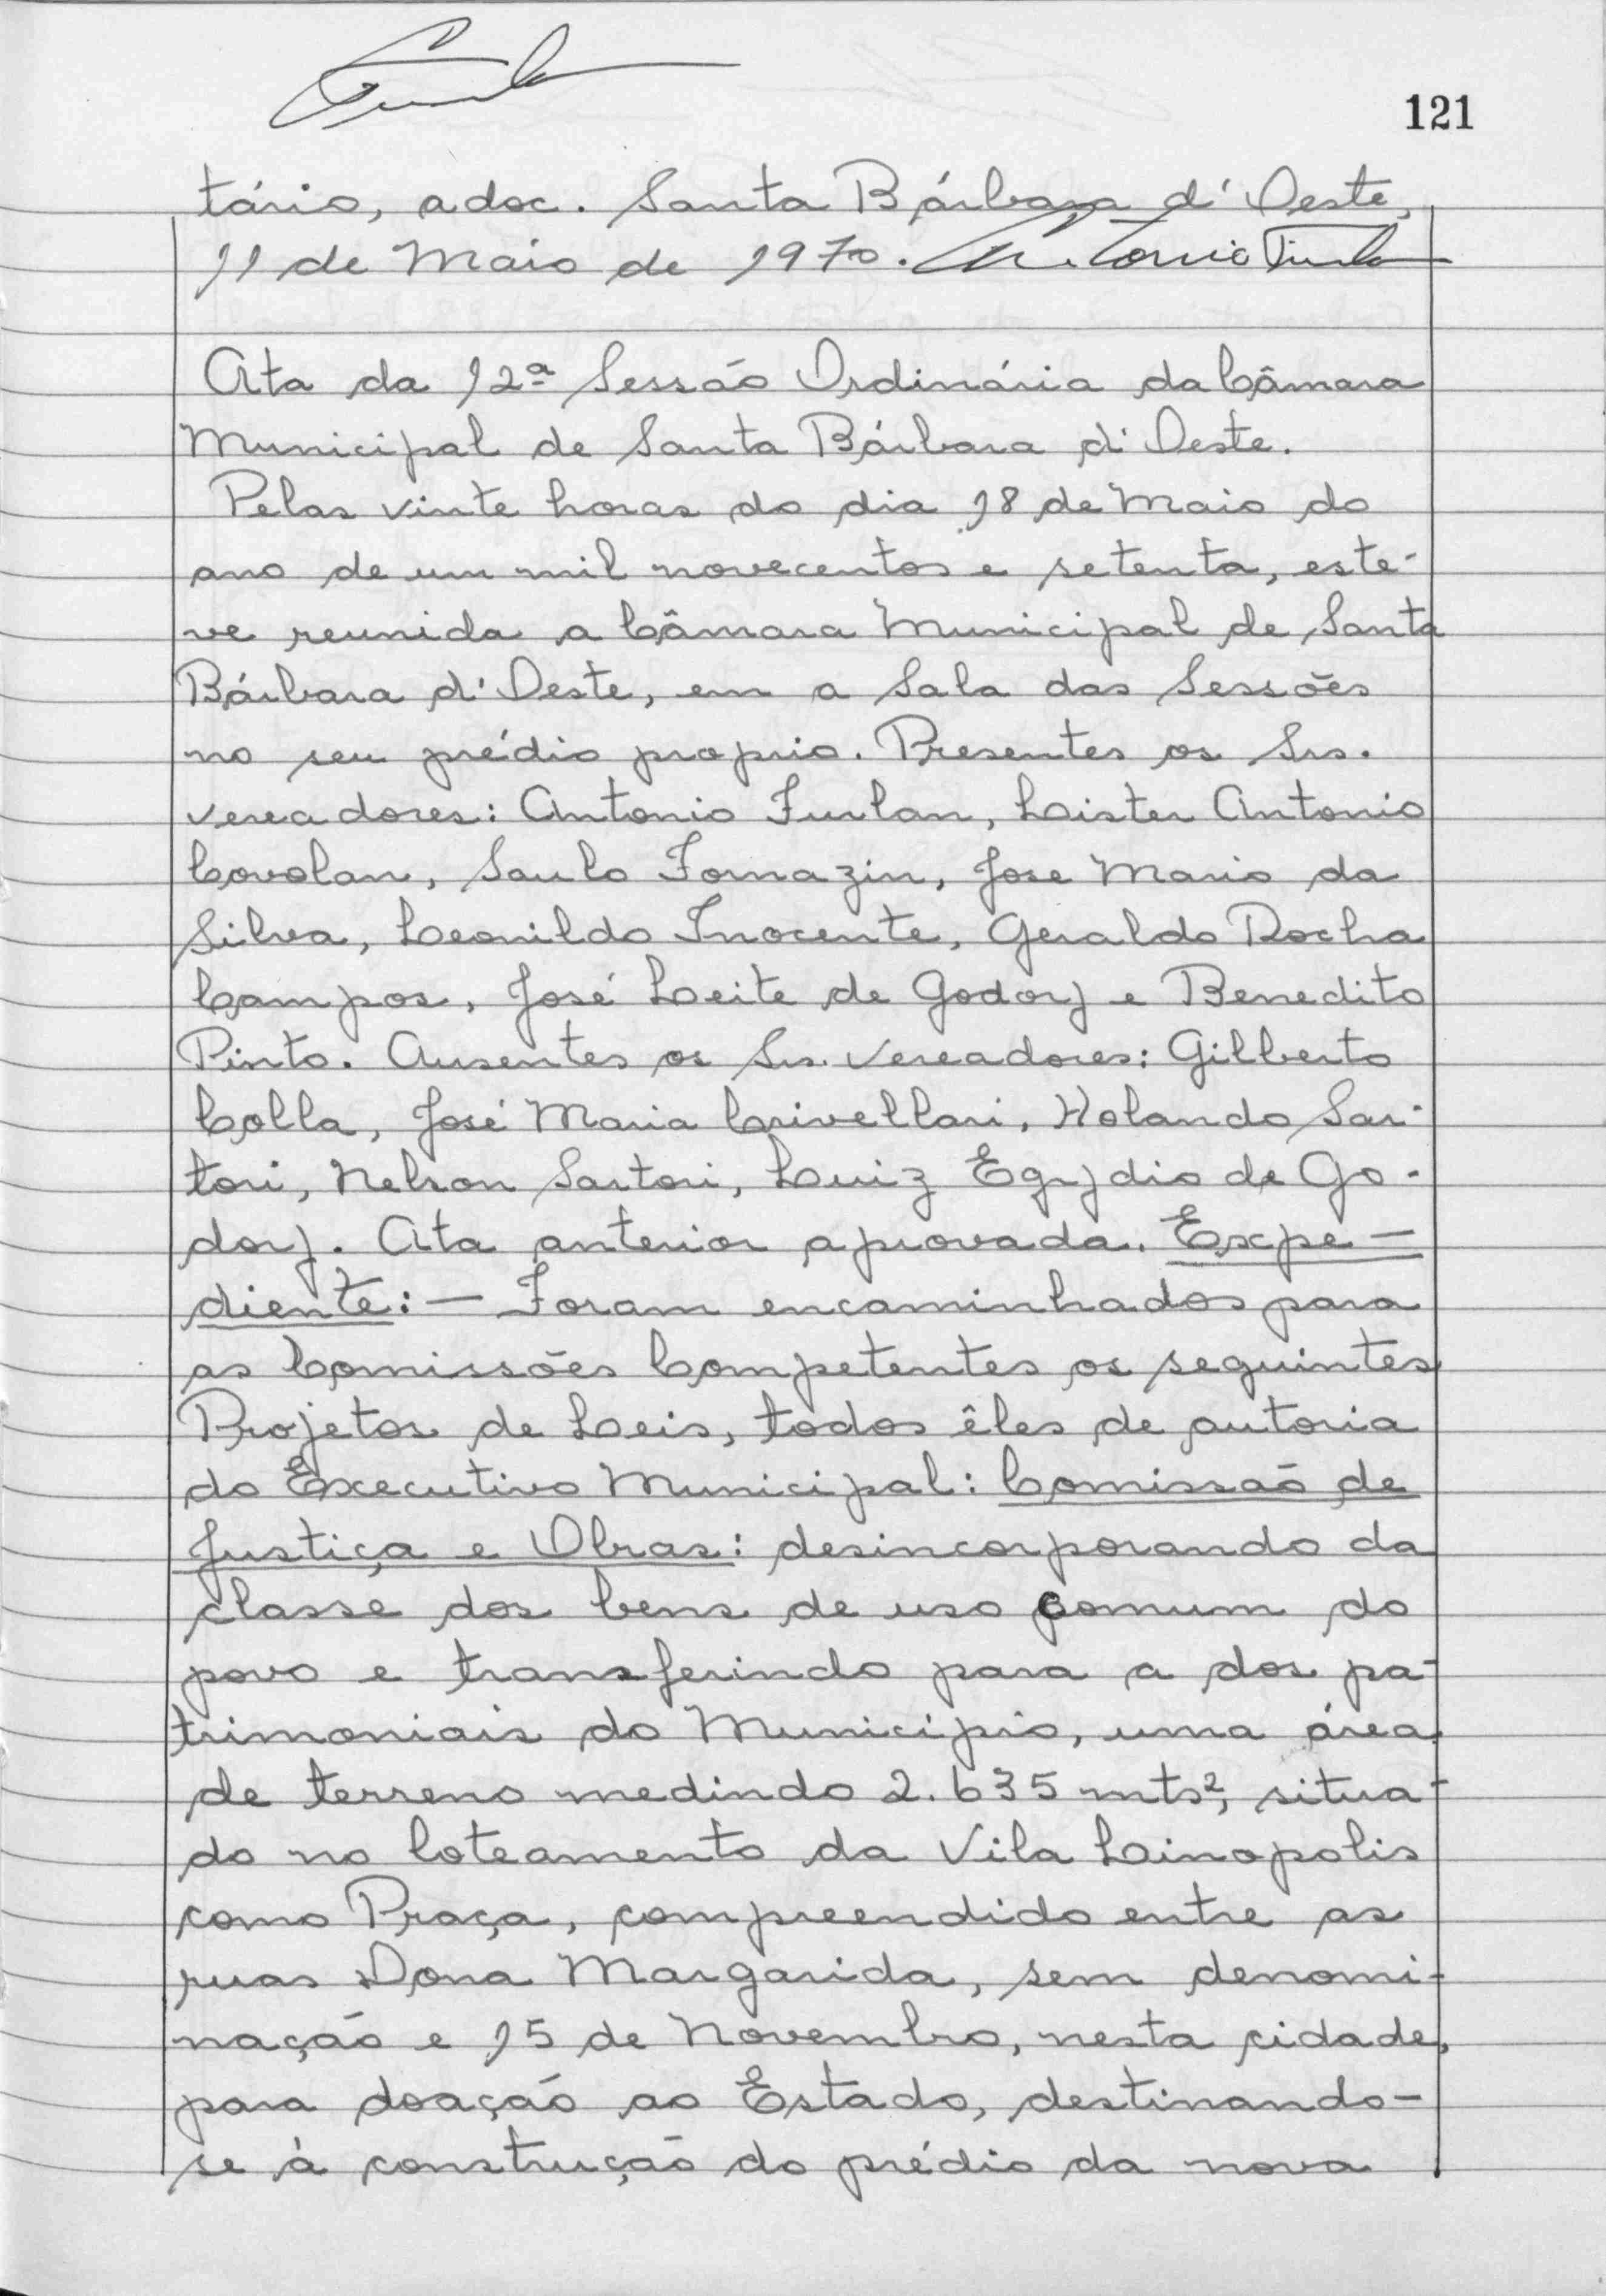 121
tário, adoc. Santa Bárbara d'Oeste,
11 de Maio de 1970. Antonio Furlan
Ata da 12ª Sessão Ordinária da Câmara
Municipal de Santa Bárbara d'Oeste.
Pelas vinte horas do dia 18 de Maio do
ano de um mil novecentos e setenta, este-
ve reunida a Câmara Municipal de Santa
Bárbara d'Oeste, em a Sala das Sessões
no seu prédio proprio. Presentes os Srs.
vereadores: Antonio Furlan, Lister Antonio
Covolan, Saulo Fornazin, Jose Mario da
Silva, Leonildo Inocente, Geraldo Rocha
Campos, José Leite de Godoy e Benedito
Pinto. Ausentes os Srs. Vereadores: Gilberto
Colla, José Maria Crivellari, Holando Sar-
tori, Nelson Sartori, Luiz Egydio de Go-
doy. Ata anterior aprovada. Expe-
diente: - Foram encaminhados para
as Comissões Competentes os seguintes
Projetos de Leis, todos êles de autoria
do Executivo Municipal: Comissão de
Justiça e Obras: desincorporando da
classe dos bens de uso comum do
povo e transferindo para a dos pa-
trimoniais do Município, uma área
de terreno medindo 2.635 mts², situa-
do no loteamento da Vila Linopolis
como Praça, compreendido entre as
ruas Dona Margarida, sem denomi-
nação e 15 de Novembro, nesta cidade,
para doação ao Estado, destinando-
se à construção do prédio da nova